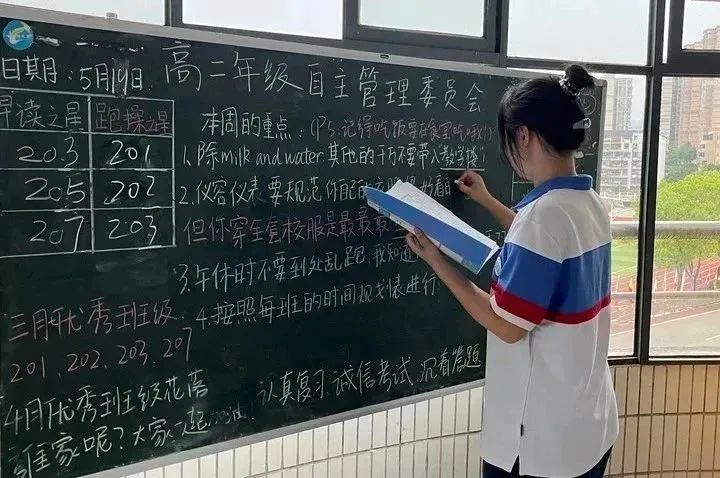 日期：5月19日
高二年级自主管理委员会
早读之星 跑操之星
203 201
205 202
207 203
本周的重点：(Ps:记得吃饭要在食堂吃哦!)
1.除milk and water.其他的千万不要带入"教学楼"
2.仪容仪表要规范
但你穿全套校服是最最最
3.午休时不要到处乱跑.我知道
4.按照每班的时间规划表进行
三月开优秀班级
201、202、203、207
4月优秀班级花落
谁家呢?大家一起加油!
认真复习.诚信考试.沉着答题